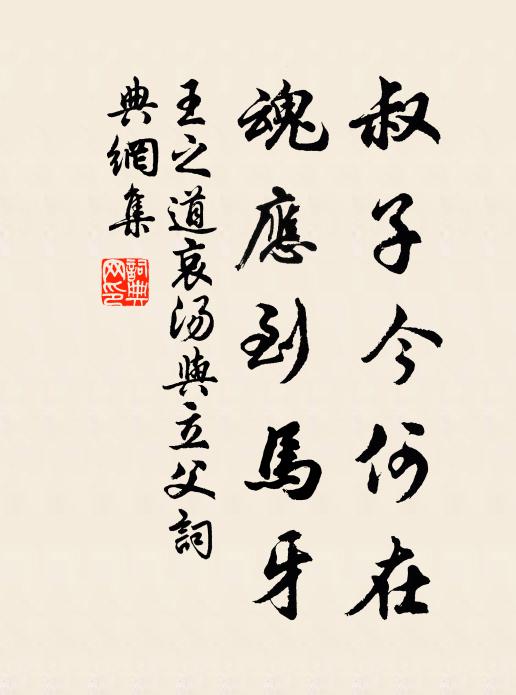 叔子今何在
魂應到馬牙
王之道哀湯與立父詞
典網集
詞典
网印